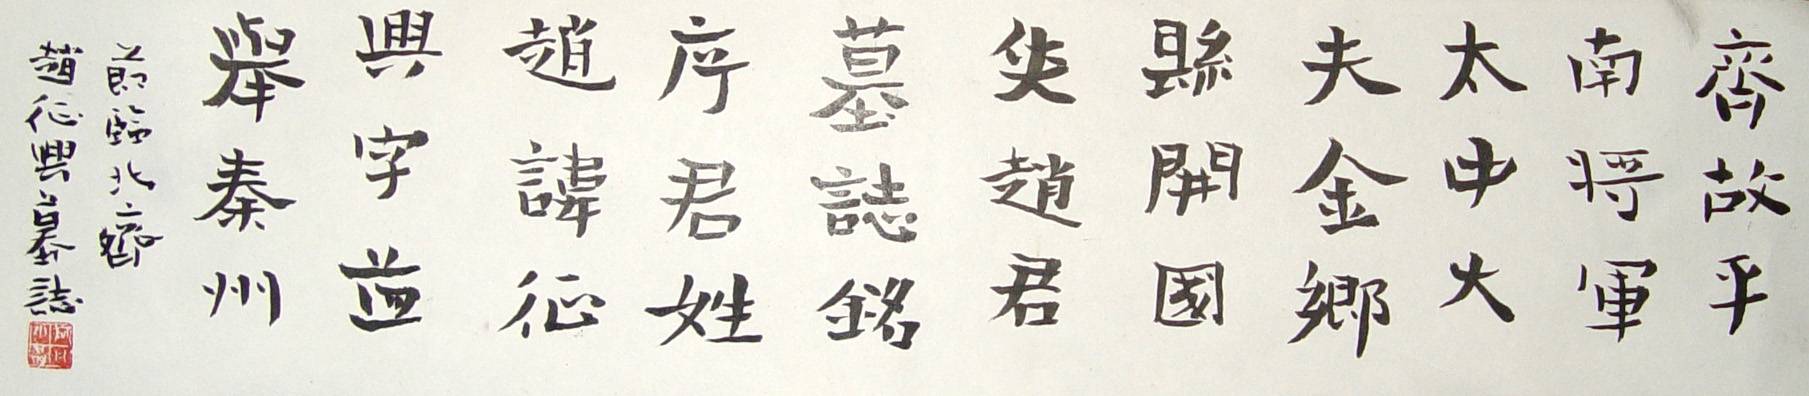 齊故平
南將軍
太中大
夫金鄉
縣開國
侯趙君
墓誌銘
序君姓
趙諱征
興字孟
舉秦州
節臨北齊
趙征興墓誌